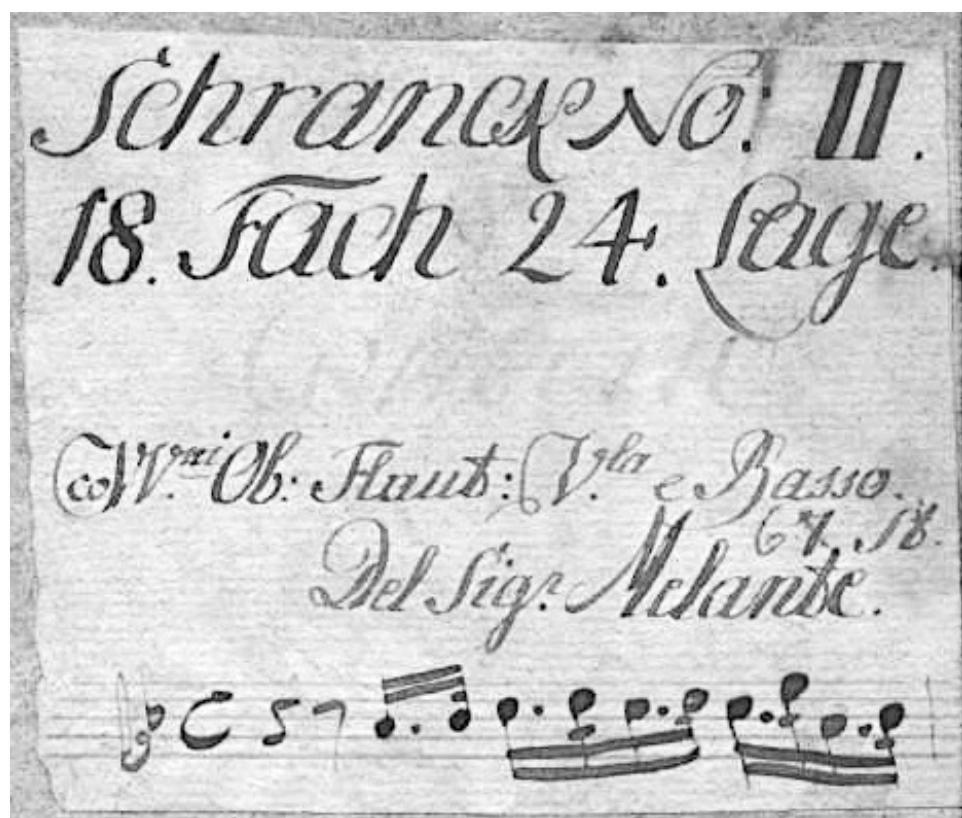 Schranck No: II.
18. Fach 24. Lage.
co VV.ni Ob: Flaut: V.la e Basso.
18.
Del Sig.r Melante.